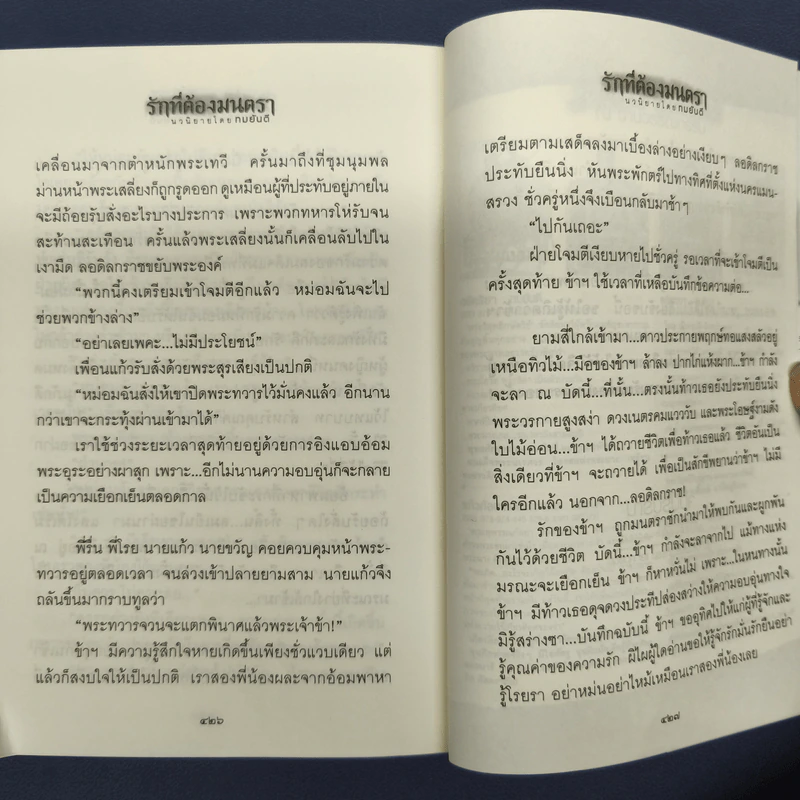 รักที่ต้องมนตรา
นวนิยายโดย ทมยันตี
เคลื่อนมาจากตำหนักพระเทวี ครั้นมาถึงที่ชุมนุมพล
ม่านหน้าพระเสลี่ยงก็ถูกรูดออก ดูเหมือนผู้ที่ประทับอยู่ภายใน
จะมีถ้อยรับสั่งอะไรบางประการ เพราะพวกทหารโห่รับจน
สะท้านสะเทือน ครั้นแล้วพระเสลี่ยงนั้นก็เคลื่อนลับไปใน
เงามืด ลอดิลกราชขยับพระองค์
“พวกนี้คงเตรียมเข้าโจมตีอีกแล้ว หม่อมฉันจะไป
ช่วยพวกข้างล่าง”
“อย่าเลยเพคะ...ไม่มีประโยชน์”
เพื่อนแก้วรับสั่งด้วยพระสุรเสียงเป็นปกติ
“หม่อมฉันสั่งให้เขาปิดพระทวารไว้มั่นคงแล้ว อีกนาน
กว่าเขาจะกระทุ้งผ่านเข้ามาได้”
เราใช้ช่วงระยะเวลาสุดท้ายอยู่ด้วยการอิงแอบอ้อม
พระอุระอย่างผาสุก เพราะ...อีกไม่นานความอบอุ่นก็จะกลาย
เป็นความเยือกเย็นตลอดกาล
พี่รื่น พี่โรย นายแก้ว นายขวัญ คอยควบคุมหน้าพระ-
ทวารอยู่ตลอดเวลา จนล่วงเข้าปลายยามสาม นายแก้วจึง
ถลันขึ้นมากราบทูลว่า
“พระทวารจวนจะแตกพินาศแล้วพระเจ้าข้า!”
ข้าฯ มีความรู้สึกใจหายเกิดขึ้นเพียงชั่วแวบเดียว แต่
แล้วก็สงบใจให้เป็นปกติ เราสองพี่น้องผละจากอ้อมพาหา
๔๒๖
รักที่ต้องมนตรา
นวนิยายโดย ทมยันตี
เตรียมตามเสด็จลงมาเบื้องล่างอย่างเงียบๆ ลอดิลกราช
ประทับยืนนิ่ง หันพระพักตร์ไปทางทิศที่ตั้งแห่งนครแมน-
สรวง ชั่วครู่หนึ่งจึงเบือนกลับมาช้าๆ
“ไปกันเถอะ”
ฝ่ายโจมตีเงียบหายไปชั่วครู่ รอเวลาที่จะเข้าโจมตีเป็น
ครั้งสุดท้าย ข้าฯ ใช้เวลาที่เหลือบันทึกข้อความต่อ...
ยามสี่ใกล้เข้ามา...ดาวประกายพฤกษ์ทอแสงสลัวอยู่
เหนือทิวไม้...มือของข้าฯ ล้าลง ปากไก่แห้งผาก...ข้าฯ กำลัง
จะลา ณ บัดนี้...ที่นั้น...ตรงนั้นท้าวเธอยังประทับยืนนิ่ง
พระวรกายสูงสง่า ดวงเนตรคมแวววับ และพระโอษฐ์งามดัง
ใบไม้อ่อน...ข้าฯ ได้ถวายชีวิตเพื่อท้าวเธอแล้ว ชีวิตอันเป็น
สิ่งเดียวที่ข้าฯ จะถวายได้ เพื่อเป็นสักขีพยานว่าข้าฯ ไม่มี
ใครอีกแล้ว นอกจาก...ลอดิลกราช!
รักของข้าฯ ถูกมนตราชักนำมาให้พบกันและผูกพัน
กันไว้ด้วยชีวิต บัดนี้...ข้าฯ กำลังจะลาจากไป แม้ทางแห่ง
มรณะจะเยือกเย็น ข้าฯ ก็หาหวั่นไม่ เพราะ...ในหนทางนั้น
ข้าฯ มีท้าวเธอดุจดวงประทีปส่องสว่างให้ความอบอุ่นทางใจ
มิรู้สร่างซา...บันทึกฉบับนี้ ข้าฯ ขออุทิศไปให้แก่ผู้ที่รู้จักและ
รู้คุณค่าของความรัก ผิไผผู้ใดอ่านขอให้รู้จักรักมั่นรักยืนอย่า
รู้โรยรา อย่าหม่นอย่าไหม้เหมือนเราสองพี่น้องเลย
๔๒๗